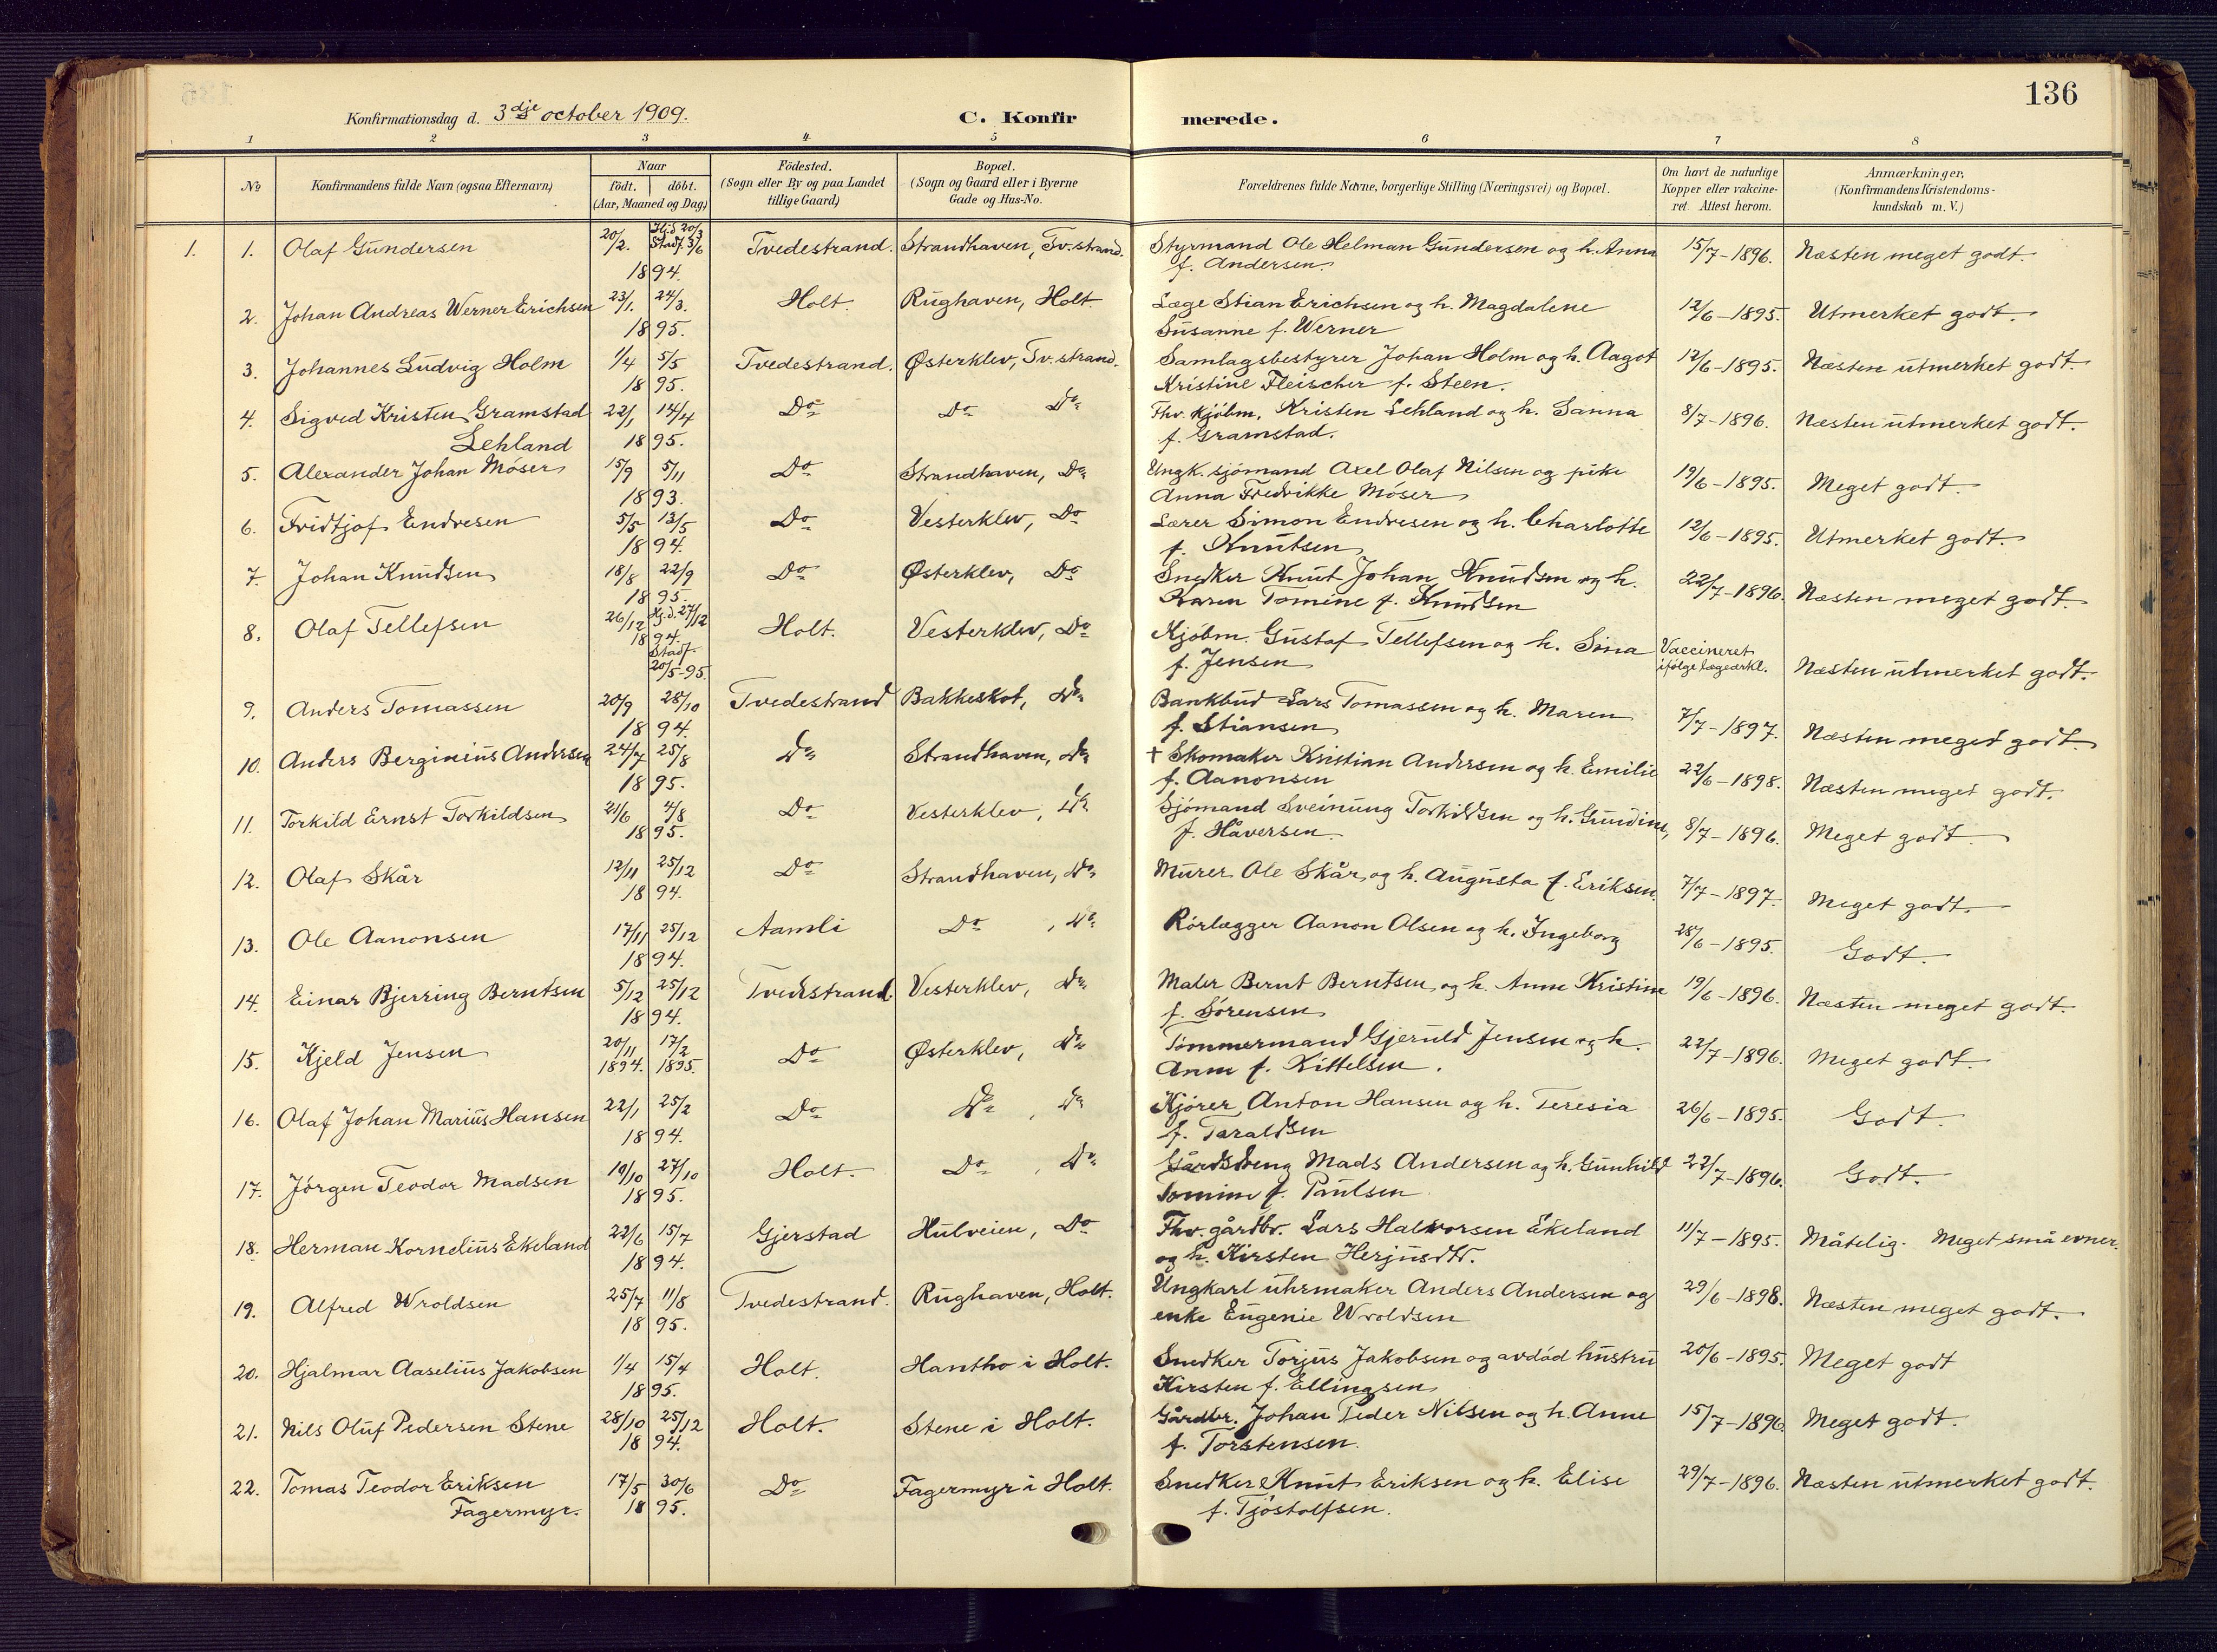 136
Konfirmationsdag d. 3dje october 1909. C. Konfirmerede.
1 2 3 4 5 6 7 8
No
Konfirmandens fulde Navn (ogsaa Efternavn)
Naar
födt. döbt.
(Aar, Maaned og Dag)
Födested.
(Sogn eller By og paa Landet
tillige Gaard)
Bopæl.
(Sogn og Gaard eller i Byerne
Gade og Hus-No.
Forældrenes fulde Navne, borgerlige Stilling (Næringsvei) og Bopæl.
Om havt de naturlige
Kopper eller vakcine-
ret. Attest herom.
Anmærkninger,
(Konfirmandens Kristendoms-
kundskab m. V.)
1. 1. Olaf Gundersen 20/2. Hjd 20/3 Stadf. 3/6 1894. Tvedestrand. Strandhaven, Tv.strand. Styrmand Ole Helman Gundersen og h. Anna 15/7-1896. Næsten meget godt.
f. Andersen.
2. Johan Andreas Werner Erichsen 23/1. 24/3. 1895. Holt. Rughaven, Holt Læge Stian Erichsen og h. Magdalene 12/6-1895. Utmerket godt.
Susanne f. Werner
3. Johannes Ludvig Holm 1/4 5/5 1895. Tvedestrand. Østerklev, Tv.strand. Samlagsbestyrer Johan Holm og h. Aagot 12/6-1895. Næsten utmerket godt.
Kristine Fleischer f. Steen.
4. Sigved Kristen Gramstad 22/1 14/4 1895. Do Do Do Fhv. kjöbm. Kristen Lehland og h. Sanna 8/7-1896. Næsten utmerket godt.
Lehland f. Gramstad.
5. Alexander Johan Möser 15/9 5/11 1893. Do Strandhaven, Do Ungk. sjömand Axel Olaf Nilsen og pike 19/6-1895. Meget godt.
Anna Fredrikke Möser
6. Fridtjof Endresen 5/5 13/5 1894. Do Vesterklev, Do Lærer Simon Endresen og h. Charlotte 12/6-1895. Utmerket godt.
f. Knutsen
7. Johan Knudsen 18/8 22/9 1895. Do Østerklev, Do Snedker Knut Johan Knudsen og h. 22/7-1896. Næsten meget godt.
Karen Tomine f. Knudsen
8. Olaf Tellefsen 26/12 Hj.d. 27/12 1894. Stadf. 20/5-95. Holt. Vesterklev, Do Kjöbm. Gustaf Tellefsen og h. Sina Vaccineret ifölge lægeærkl. Næsten utmerket godt.
f. Jensen
9. Anders Tomassen 20/9 28/10 1894. Tvedestrand Bakkeskot, Do Bankbud Lars Tomassen og h. Maren 7/7-1897. Næsten meget godt.
f. Stiansen
10. Anders Berginius Andersen 24/7 25/8 1895. Do Strandhaven, Do † Skomaker Kristian Andersen og h. Emilie 22/6-1898. Næsten meget godt.
f. Aanonsen
11. Torkild Ernst Torkildsen 21/6 4/8 1895. Do Vesterklev, Do Sjömand Sveinung Torkildsen og h. Gundine, 8/7-1896. Meget godt.
f. Håversen
12. Olaf Skår 12/11 25/12 1894. Do Strandhaven, Do Murer Ole Skår og h. Augusta f. Eriksen. 7/7-1897. Meget godt.
13. Ole Aanonsen 17/11 25/12 1894. Aamli Do, Do Rörlægger Aanon Olsen og h. Ingeborg 28/6-1895. Godt.
14. Einar Bjerring Berntsen 5/12 25/12 1894. Tvedestrand. Vesterklev, Do Maler Bernt Berntsen og h. Anne Kristine 19/6-1896. Næsten meget godt.
f. Sörensen
15. Kjeld Jensen 20/11 1894. 17/2 1895. Do Østerklev, Do Tömmermand Gjeruld Jensen og h. 22/7-1896. Meget godt.
Anne f. Kittelsen.
16. Olaf Johan Marius Hansen 22/1 25/2 1894. Do Do, Do Kjörer Anton Hansen og h. Teresia 26/6-1895. Godt.
f. Taraldsen
17. Jörgen Teodor Madsen 19/10 27/10 1895. Holt. Do, Do Gårdsdreng Mads Andersen og h. Gunhild 22/7-1896. Godt.
Tomine f. Paulsen
18. Herman Kornelius Ekeland 22/6 15/7 1894. Gjerstad Hulveien, Do Fhv. gårdbr. Lars Halvorsen Ekeland 11/7-1895. Måtelig. Meget små evner.
og h. Kirsten Herjusdtr.
19. Alfred Wroldsen 25/7 11/8 1895. Tvedestrand. Rughaven, Holt. Ungkarl uhrmaker Anders Andersen og 29/6-1898. Næsten meget godt.
enke Eugenie Wroldsen
20. Hjalmar Aaselius Jakobsen 1/4 15/4 1895. Holt. Hantho i Holt. Snedker Torjus Jakobsen og avdöd hustru 20/6-1895. Meget godt
Kirsten f. Ellingsen
21. Nils Oluf Pedersen Stene 28/10 25/12 1894. Holt. Stene i Holt. Gårdbr. Johan Peder Nilsen og h. Anne 15/7-1896. Meget godt.
f. Torstensen.
22. Tomas Teodor Eriksen 17/5 30/6 1895. Do Fagermyr i Holt. Snedker Knut Eriksen og h. Elise 29/7-1896. Næsten utmerket godt.
Fagermyr. f. Tjöstolfsen.